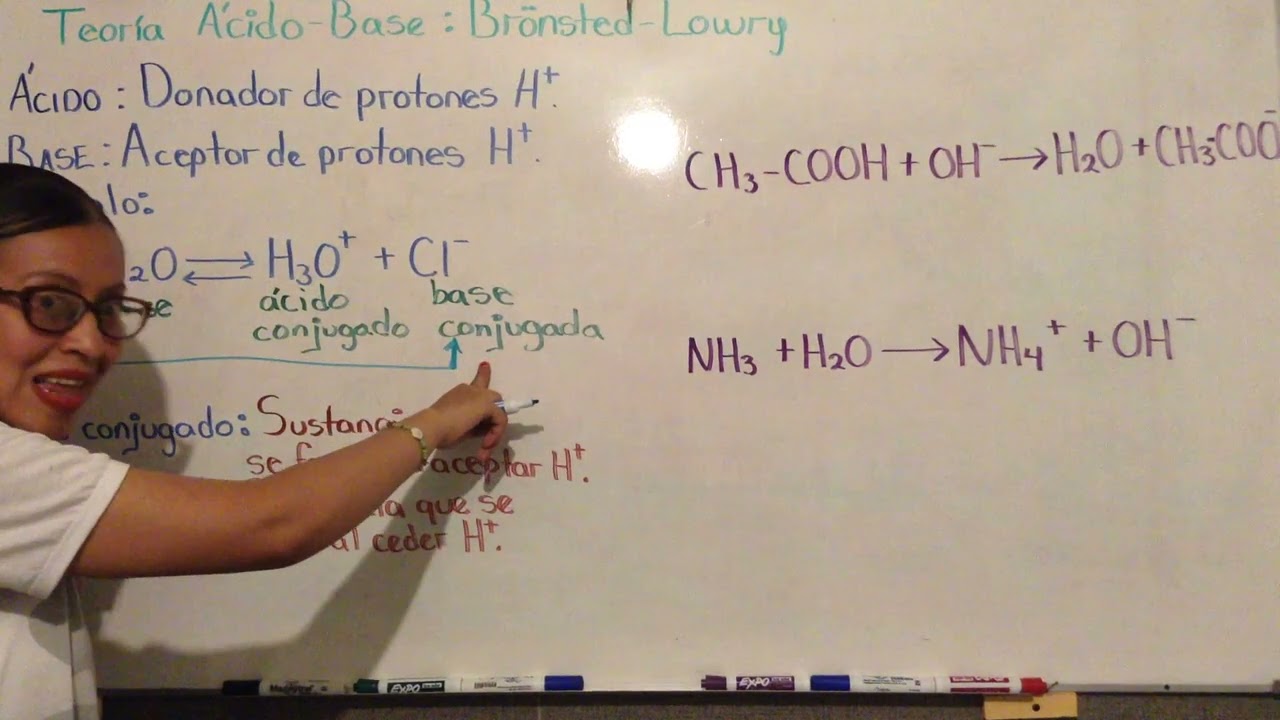 Teoría Ácido-Base: Brönsted-Lowry
ÁCIDO: Donador de protones H⁺.
BASE: Aceptor de protones H⁺.
lo:
₂O ⇌ H₃O⁺ + Cl⁻
se ácido conjugado base conjugada
conjugado:
se aceptar H⁺.
que se
al ceder H⁺.
CH₃-COOH + OH⁻ → H₂O + CH₃-COO⁻
NH₃ + H₂O → NH₄⁺ + OH⁻
EXPO
EXPO